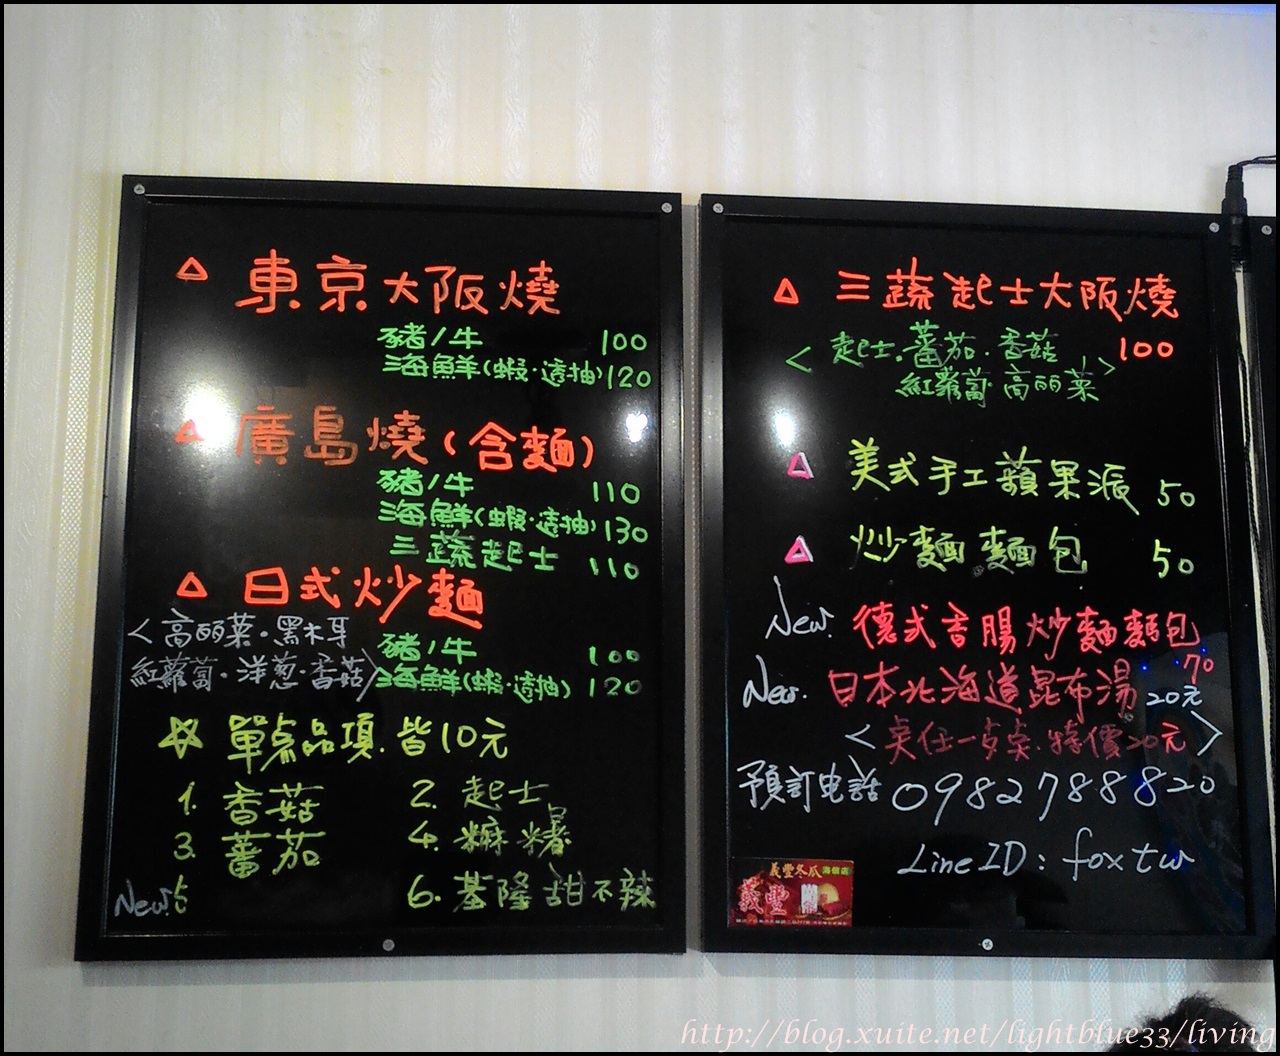 △ 東京大阪燒
豬/牛 100
海鮮(蝦·透抽) 120
△ 廣島燒(含麵)
豬/牛 110
海鮮(蝦·透抽) 130
三蔬起士 110
△ 日式炒麵
<高丽菜·黑木耳
紅蘿蔔·洋葱·香菇>
豬/牛 100
海鮮(蝦·透抽) 120
☆ 單点品項.皆10元
1. 香菇 2. 起士
3. 蕃茄 4. 麻糬
New! 5 6. 基隆甜不辣
△ 三蔬起士大阪燒
100
<起士.蕃茄.香菇
紅蘿蔔·高丽菜>
△ 美式手工蘋果派 50
△ 炒麵麵包 50
New. 德式香腸炒麵麵包
70
New. 日本北海道昆布湯 20元
預訂电話 0982788820
Line ID: foxtw
義豐冬瓜
義豐
http://blog.xuite.net/lightblue33/living